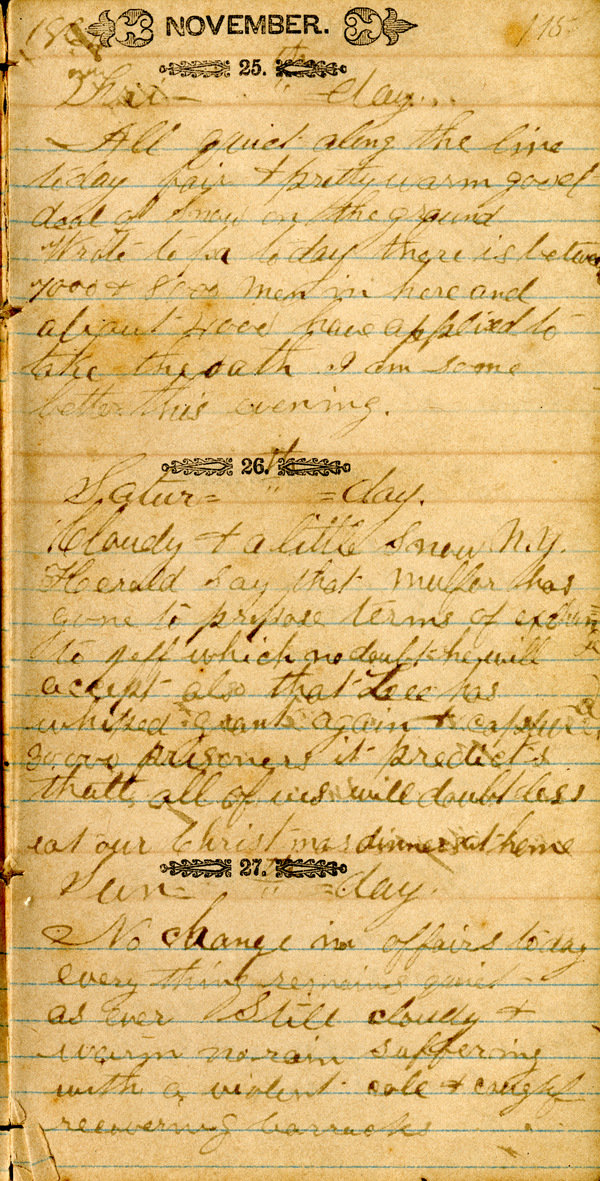 NOVEMBER.
25.
Fri= " =day.
All quiet along the line
today fair & pretty warm good
deal of Snow on the ground
Wrote to Pa to day there is between
7000 & 8000 men in here and
about 4000 have applied to
take the oath I am some
better this evening.
26.th
Satur= " =day.
Cloudy & a little Snow N.Y.
Herald say that has
gone to propose terms of
to Jeff which no doubt he will
accept also that Lee has
whiped grant again & capture
30000 prisoners it predicts
that all of us will doubtless
eat our Christmas dinners at home
27.
Sun= " =day.
No change in affairs today
every thing remains quiet
as ever Still cloudy &
warm no rain suffering
with a violent cole & cough
recovering barracks